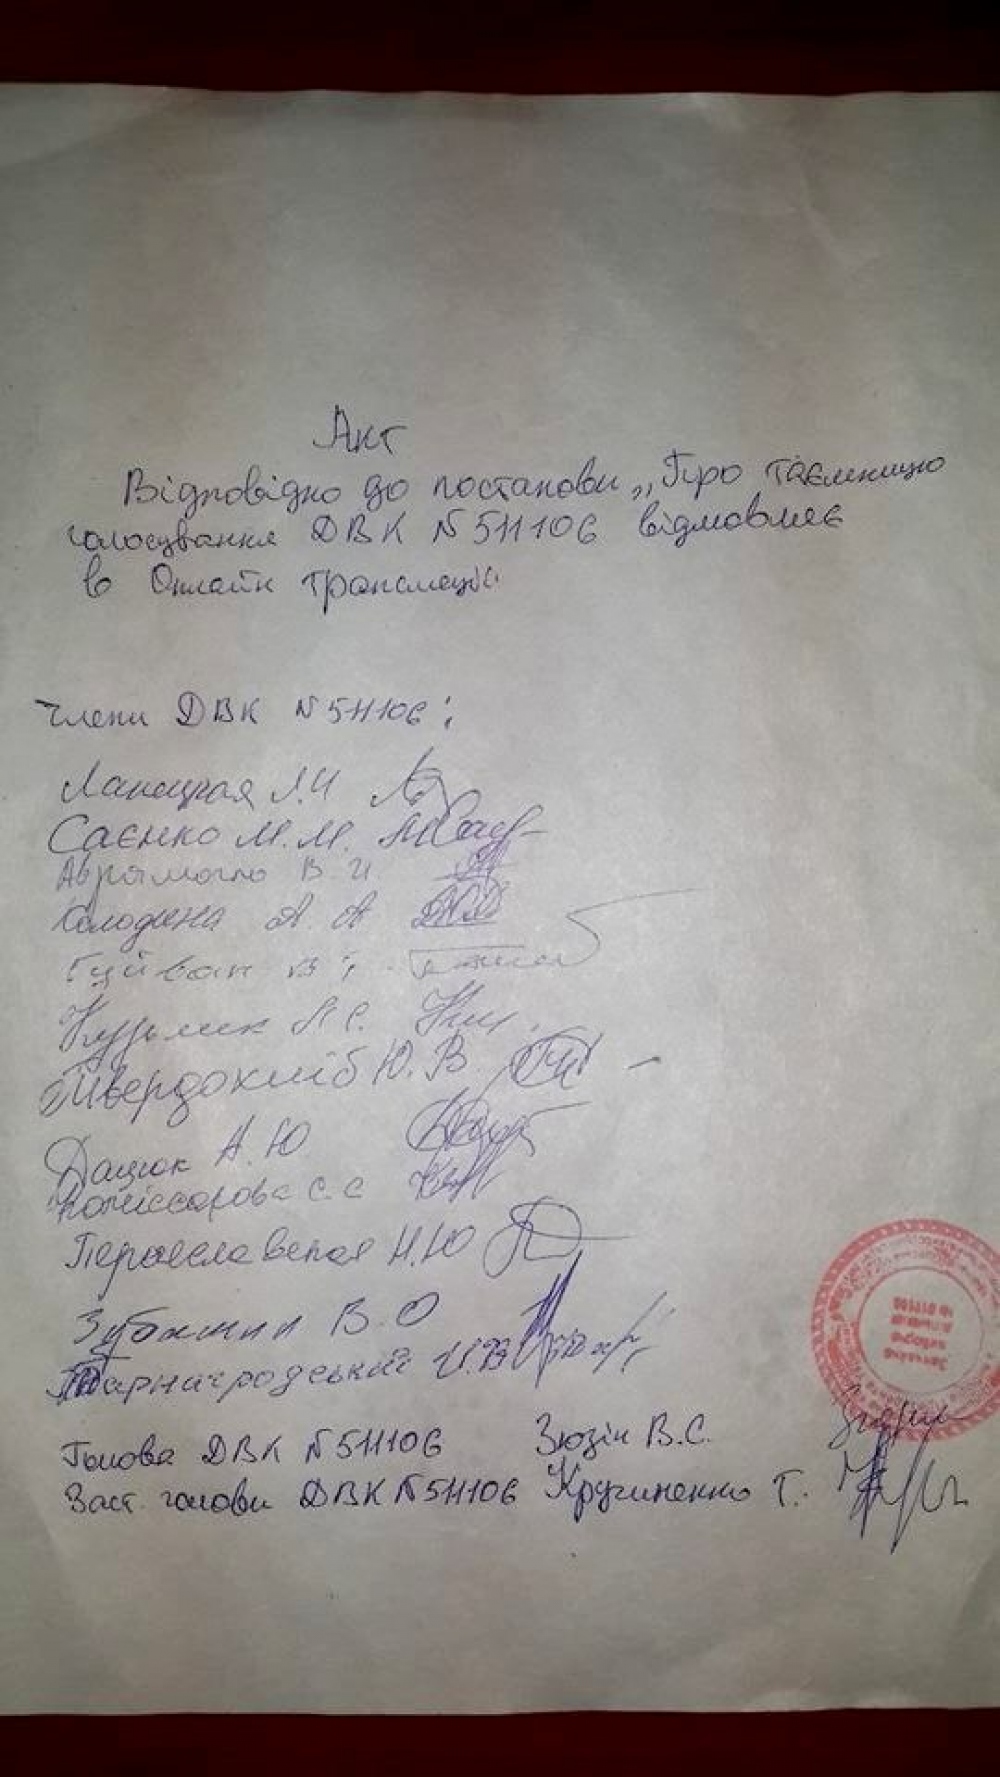 Акт
Відповідно до постанови „Про таємницю
голосування ДВК №511106 відмовляє
в Онлайн трансляції
Члени ДВК №511106:
Ланецкая Л.И
Саєнко М.М.
Аврамогло В.И.
Колодина А. А
Гуйван В
Кузьмик С.
Твердохліб Ю.В.
Дацюк А.Ю
Коміссарова С.С
Переяславская Н.Ю
В.О
Тарнагродський
Голова ДВК №511106 Зюзін В.С.
Заст. голови ДВК №511106 Кругиненко Т.